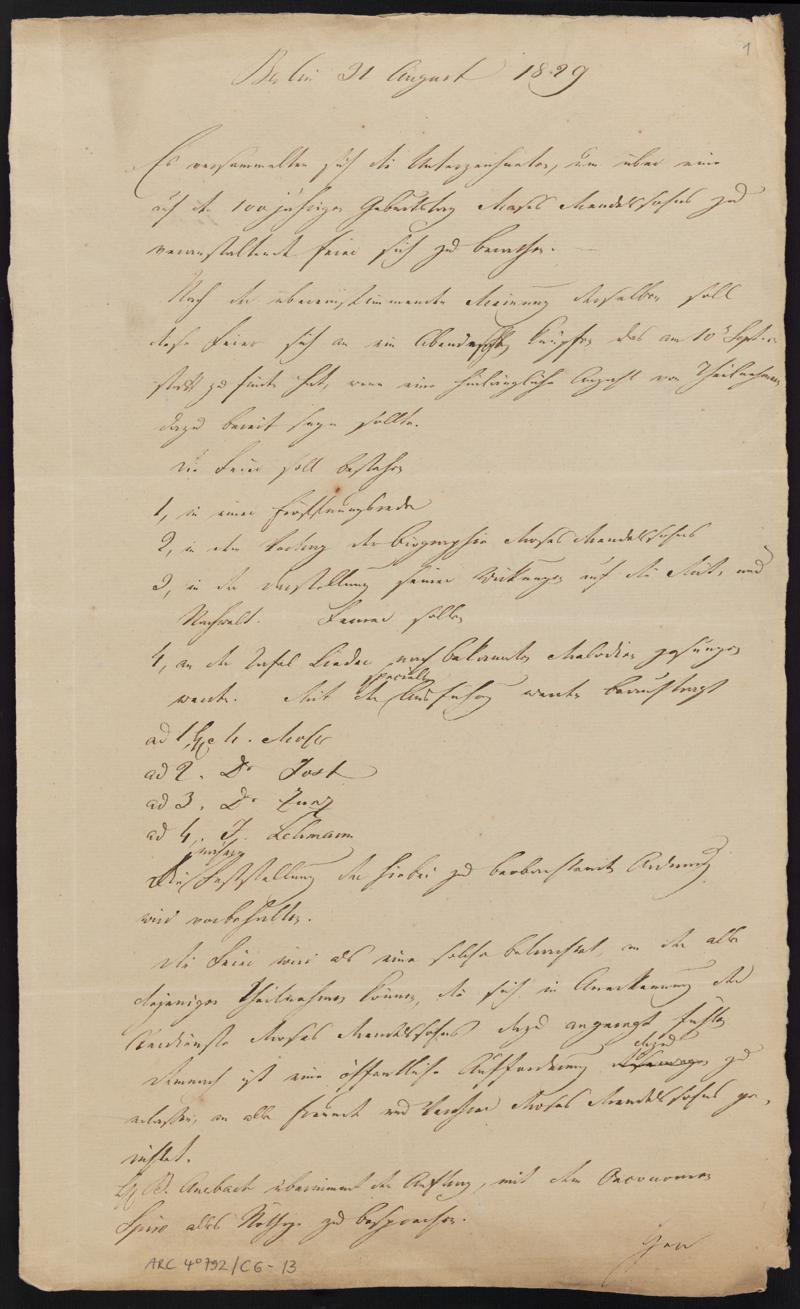 1
Berlin 31 August 1829
Es versammelten sich die Unterzeichneten, um über eine
auf den 100jährigen Geburtstag Moses Mendelssohns zu
veranstaltende Feier sich zu berathen.
Nach der übereinstimmenden Meinung derselben soll
diese Feier sich an ein Abendessen knüpfen das am 10t Sept.
statt zu finden hat, wenn eine hinlängliche Anzahl von Theilnehmern
dazu bereit seyn sollte.
Die Feier soll bestehen
1, in einer Eröffnungsrede
2, in dem Vortrag der Biographie Moses Mendelssohns
3, in der Darstellung seiner Wirkungen auf die Mit- und
Nachwelt. Ferner sollen
4, an der Tafel Lieder nach bekannten Melodien gesungen
werden. Mit der speciellen Ausführung werden beauftragt
ad 1, H. M. Moser
ad 2. Dr Jost
ad 3. Dr Zunz
ad 4. J. Lehmann
Die nähere Feststellung der hiebei zu beobachtenden Ordnung
wird vorbehalten.
Die Feier wird als eine solche betrachtet, an der alle
diejenigen Theilnehmen können, die sich in Anerkennung der
Verdienste Moses Mendelssohns dazu angeregt fühlen
Demnach ist eine öffentliche Aufforderung dazu zu
erlassen, an alle Freunde und Verehrer Moses Mendelssohns ge-
richtet.
H. B. Auerbach übernimmt den Auftrag, mit dem Oeconomen
Spiro alles Nöthige zu besprechen.
ARC 4° 792/C6-13